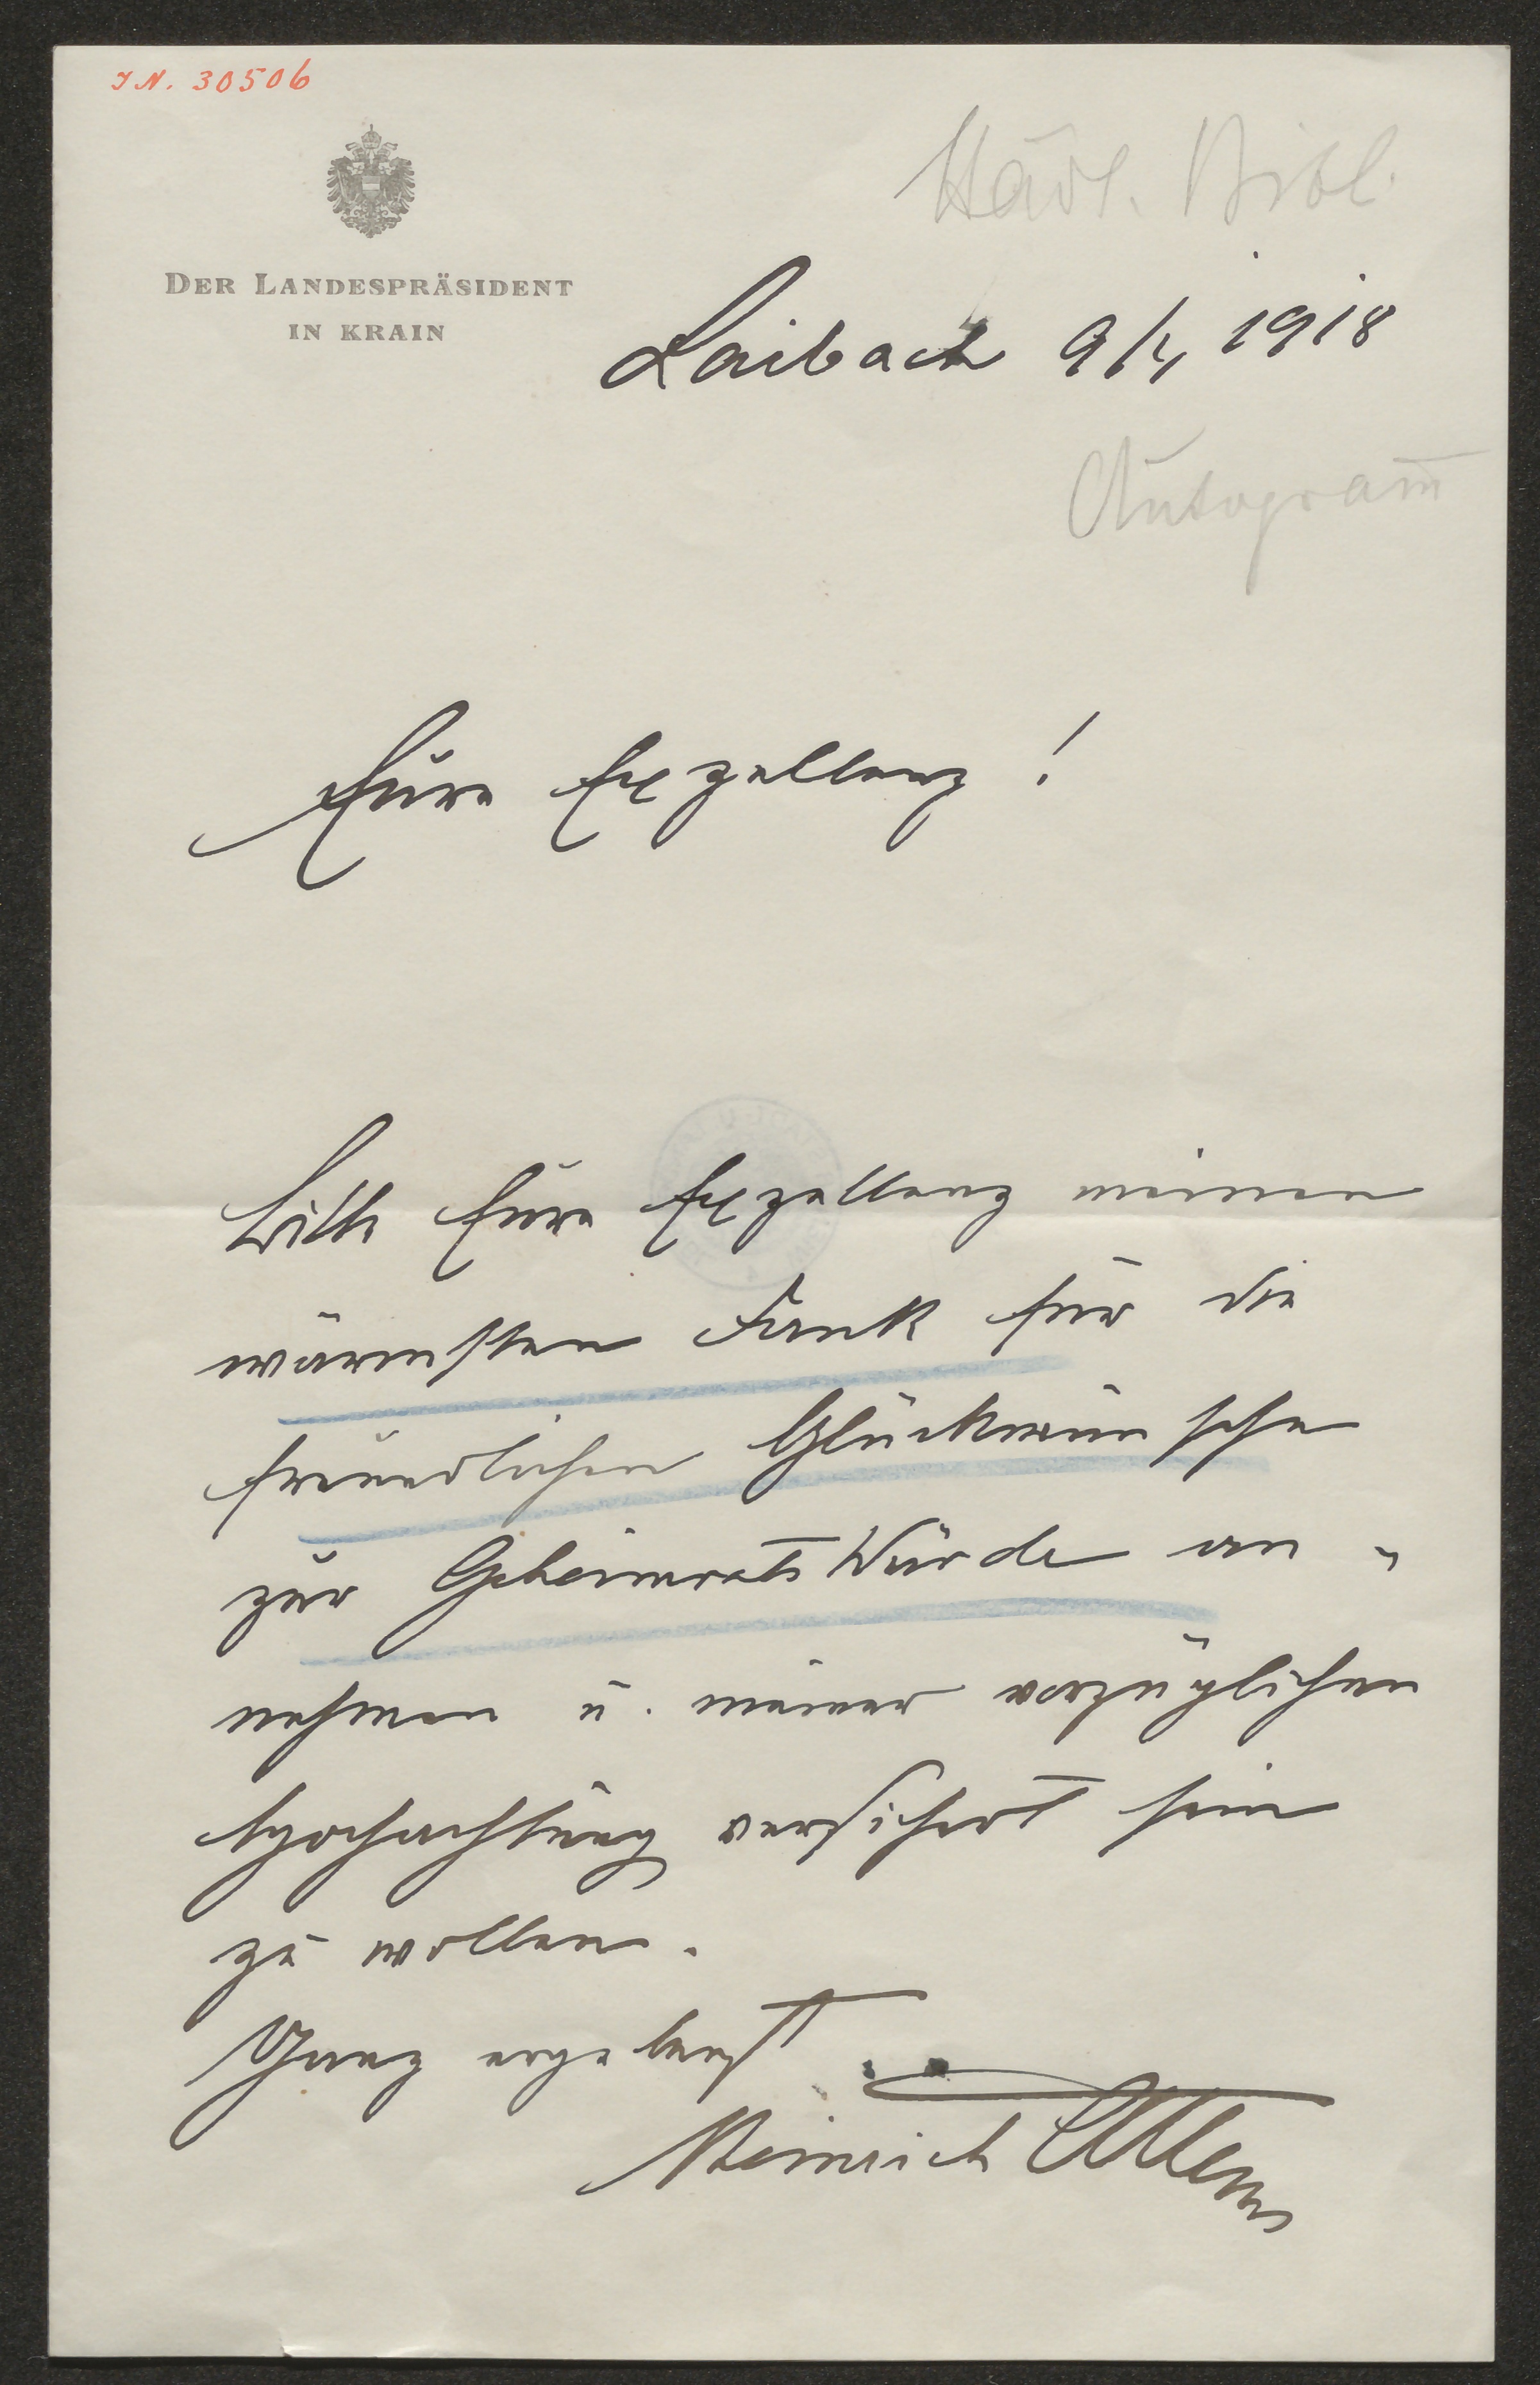 I.N. 30506
Städt. Bibl.
DER LANDESPRÄSIDENT
IN KRAIN
Laibach 9/4 1918
Autogram̅
Eure Exzellenz!
Bitte Eure Exzellenz meinen
wärmsten Dank für die
freundlichen Glückwünsche
zur Geheimrats Würde an-
nehmen u. meiner vorzüglichen
Hochachtung versichert sein
zu wollen.
Ganz ergebenst
Heinrich Attems